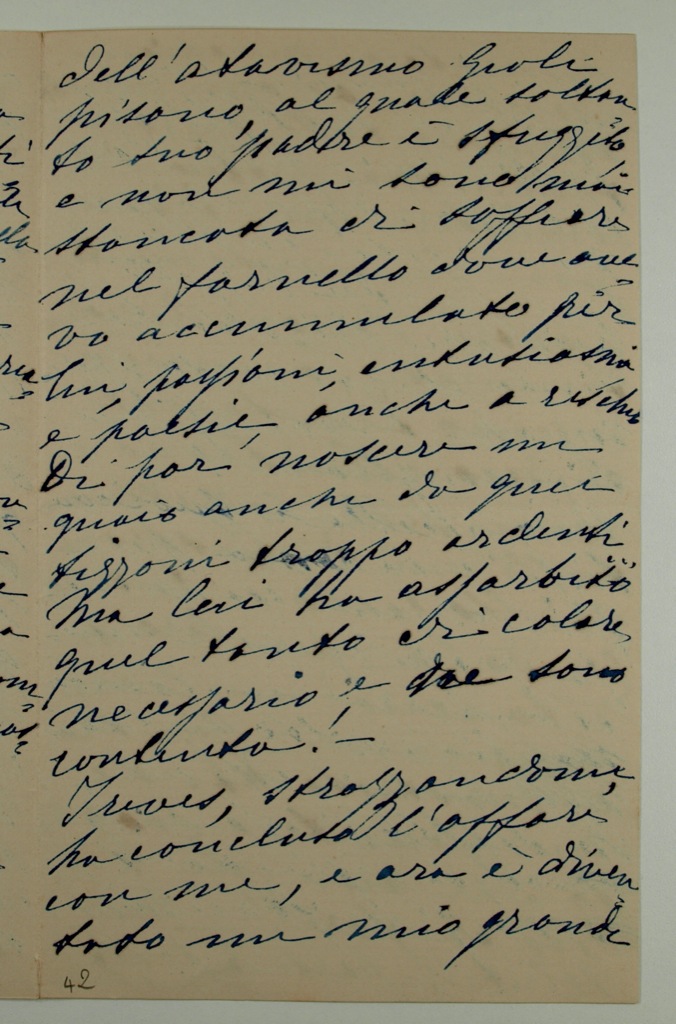 dell'atavismo Gioli
pisano, al quale soltan
to suo padre è sfuggito
e non mi sono mai
stancata di soffiare
nel fornello dove ave=
vo accumulato per
lui, passioni, entusiasmi
e poesie, anche a rischio
di far nascere un
guaio anche da quei
tizzoni troppo ardenti
Ma lui ha assorbito
quel tanto di calore
necessario, e sono
contenta! —
Treves, strozzandomi,
ha concluso l'affare
con me, e ora è diven=
tato un mio grande
42